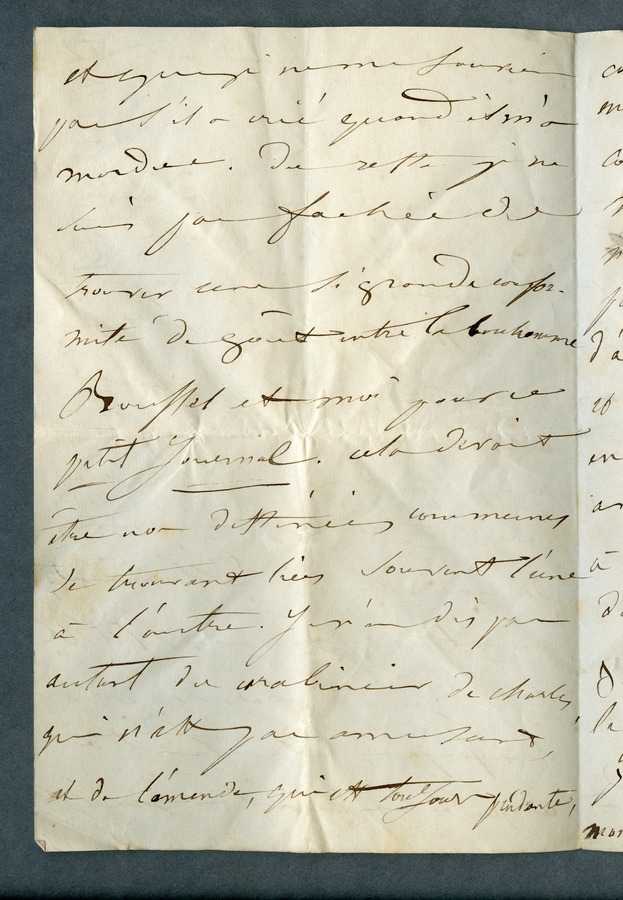 et que je ne me souviens
pas s'il a crié quand il m'a
mordue. Du reste je ne
suis pas fachée de
trouver une si grande confor-
mité de goût entre le bonhomme
Rouffet et moi pour ce
petit Journal. cela devait
être nos destinées communes
se trouvant liées souvent l'une
à l'autre. Je n'en dis pas
autant du de charles
qui n'est pas amusant,
et de l'amende, qui est toujours pendante,